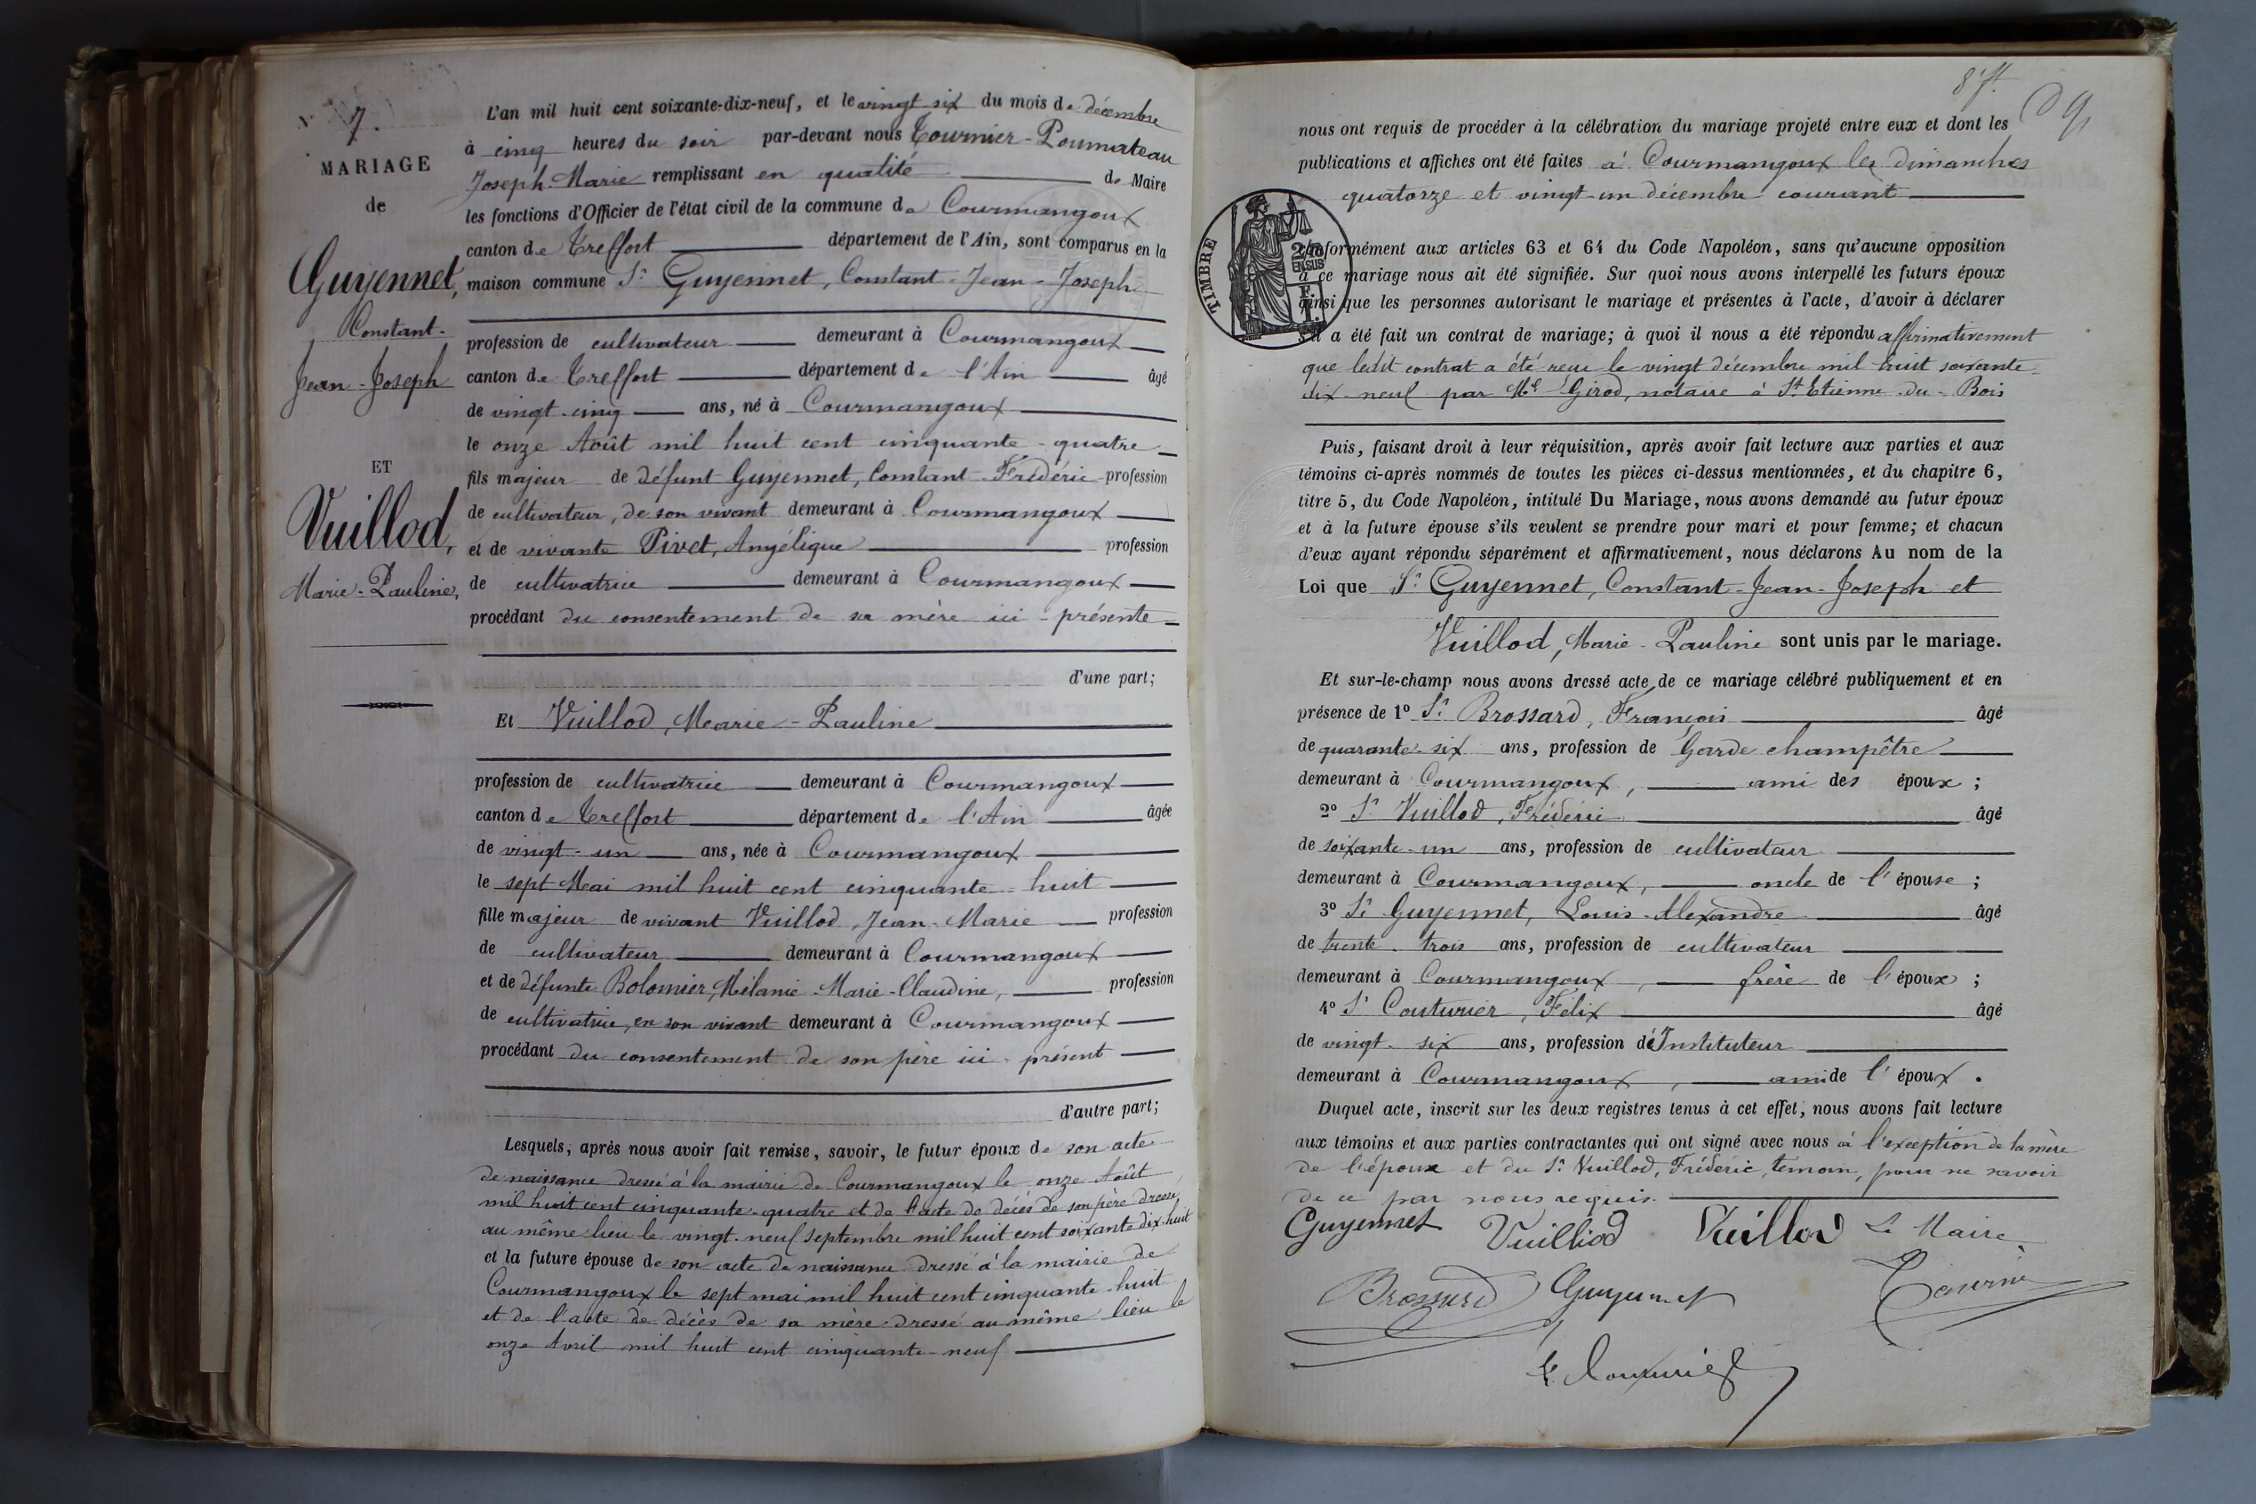 N° 7.
MARIAGE
de
Guyennet,
Constant-
Jean-Joseph
ET
Vuillod,
Marie-Pauline,
L'an mil huit cent soixante-dix-neuf, et le vingt six du mois de décembre
à cinq heures du soir par-devant nous Tournier-Poumateau
Joseph-Marie remplissant en qualité de Maire
les fonctions d'Officier de l'état civil de la commune de Courmangoux
canton de Treffort département de l'Ain, sont comparus en la
maison commune Sr Guyennet, Constant-Jean-Joseph
profession de cultivateur demeurant à Courmangoux
canton de Treffort département de l'Ain âgé
de vingt-cinq ans, né à Courmangoux
le onze Août mil huit cent cinquante-quatre
fils majeur de défunt Guyennet, Constant-Frédéric profession
de cultivateur, de son vivant demeurant à Courmangoux
et de vivante Pivet, Angélique profession
de cultivatrice demeurant à Courmangoux
procédant du consentement de sa mère ici-présente
d'une part;
Et Vuillod, Marie-Pauline
profession de cultivatrice demeurant à Courmangoux
canton de Treffort département de l'Ain âgée
de vingt-un ans, née à Courmangoux
le sept Mai mil huit cent cinquante-huit
fille majeur de vivant Vuillod, Jean-Marie profession
de cultivateur demeurant à Courmangoux
et de défunte Bolomier, Mélanie-Marie-Claudine, profession
de cultivatrice, en son vivant demeurant à Courmangoux
procédant du consentement de son père ici-présent
d'autre part;
Lesquels, après nous avoir fait remise, savoir, le futur époux de son acte
de naissance dressé à la mairie de Courmangoux le onze Août
mil huit cent cinquante-quatre et de l'acte de décès de son père dressé
au même lieu le vingt-neuf septembre mil huit cent soixante dix-huit
et la future épouse de son acte de naissance dressé à la mairie de
Courmangoux le sept mai mil huit cent cinquante-huit
et de l'acte de décès de sa mère dressé au même lieu le
onze Avril mil huit cent cinquante-neuf
nous ont requis de procéder à la célébration du mariage projeté entre eux et dont les
publications et affiches ont été faites à Courmangoux les dimanches
quatorze et vingt-un décembre courant
TIMBRE
conformément aux articles 63 et 64 du Code Napoléon, sans qu'aucune opposition
à ce mariage nous ait été signifiée. Sur quoi nous avons interpellé les futurs époux
ainsi que les personnes autorisant le mariage et présentes à l'acte, d'avoir à déclarer
s'il a été fait un contrat de mariage; à quoi il nous a été répondu affirmativement
que ledit contrat a été reçu le vingt décembre mil huit soixante
dix-neuf par Me Girod, notaire à St Etienne-du-Bois
Puis, faisant droit à leur réquisition, après avoir fait lecture aux parties et aux
témoins ci-après nommés de toutes les pièces ci-dessus mentionnées, et du chapitre 6,
titre 5, du Code Napoléon, intitulé Du Mariage, nous avons demandé au futur époux
et à la future épouse s'ils veulent se prendre pour mari et pour femme; et chacun
d'eux ayant répondu séparément et affirmativement, nous déclarons Au nom de la
Loi que Sr Guyennet, Constant-Jean-Joseph et
Vuillod, Marie-Pauline sont unis par le mariage.
Et sur-le-champ nous avons dressé acte de ce mariage célébré publiquement et en
présence de 1° Sr Brossard, François âgé
de quarante-six ans, profession de Garde champêtre
demeurant à Courmangoux, ami des époux;
2° Sr Vuillod, Frédéric âgé
de soixante-un ans, profession de cultivateur
demeurant à Courmangoux, oncle de l'épouse;
3° Sr Guyennet, Louis-Alexandre âgé
de trente-trois ans, profession de cultivateur
demeurant à Courmangoux, frère de l'époux;
4° Sr Couturier, Félix âgé
de vingt-six ans, profession d'Instituteur
demeurant à Courmangoux, ami de l'époux.
Duquel acte, inscrit sur les deux registres tenus à cet effet, nous avons fait lecture
aux témoins et aux parties contractantes qui ont signé avec nous à l'exception de la mère
de l'époux et du Sr Vuillod, Frédéric, témoin, pour ne savoir
de ce par nous requis.
Guyennet Vuilliod Vuillod Le Maire
Brossard Guyennet Tournier